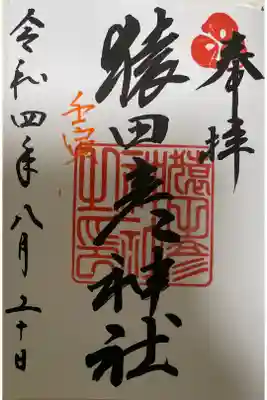 奉拝
猿田彦神社
壬寅
令和四年八月二十日